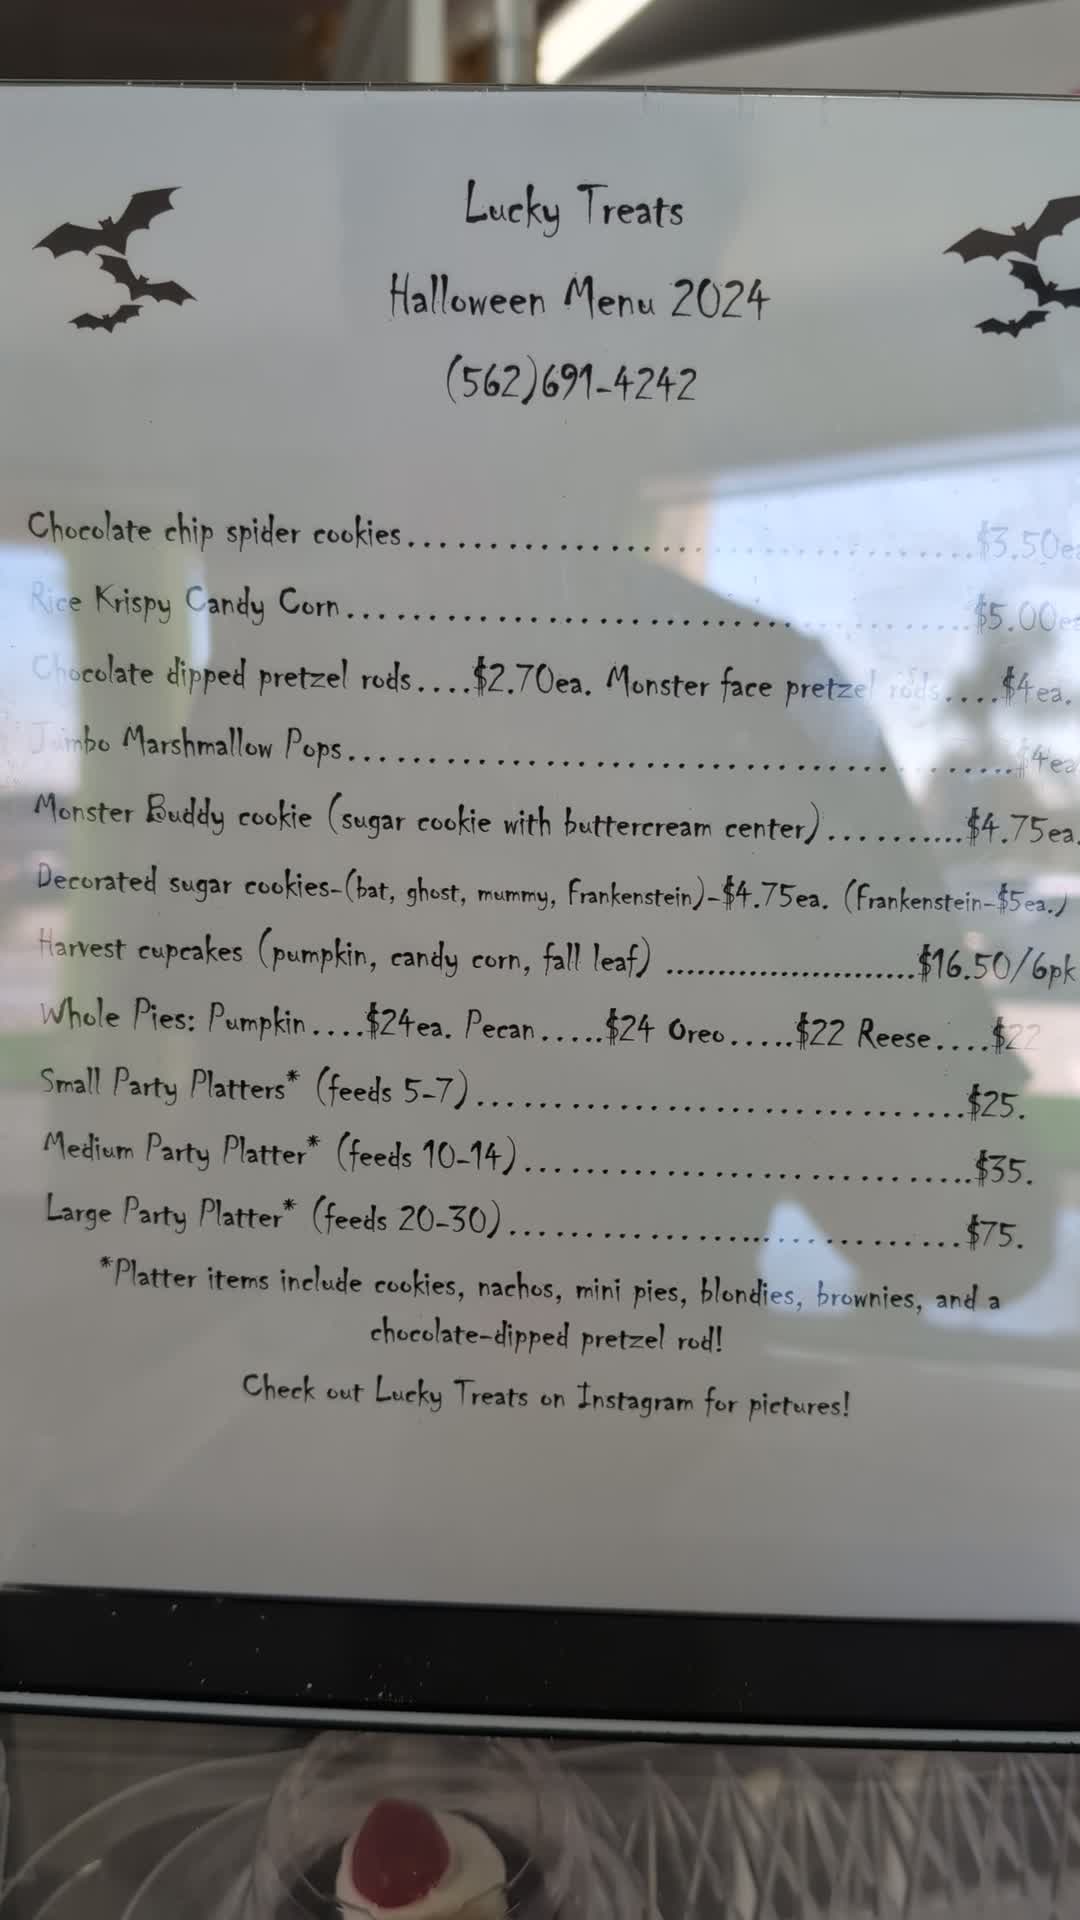 Lucky Treats
Halloween Menu 2024
(562)691-4242
Chocolate chip spider cookies..............................$3.50ea
Rice Krispy Candy Corn..............................$5.00ea
Chocolate dipped pretzel rods....$2.70ea. Monster face pretzel rods....$4ea.
Jumbo Marshmallow Pops..............................$4ea
Monster Buddy cookie (sugar cookie with buttercream center)..........$4.75ea.
Decorated sugar cookies-(bat, ghost, mummy, Frankenstein)-$4.75ea. (Frankenstein-$5ea.)
Harvest cupcakes (pumpkin, candy corn, fall leaf) ........................$16.50/6pk
Whole Pies: Pumpkin....$24ea. Pecan.....$24 Oreo.....$22 Reese....$22
Small Party Platters* (feeds 5-7)..............................$25.
Medium Party Platter* (feeds 10-14)..............................$35.
Large Party Platter* (feeds 20-30)..............................$75.
*Platter items include cookies, nachos, mini pies, blondies, brownies, and a
chocolate-dipped pretzel rod!
Check out Lucky Treats on Instagram for pictures!